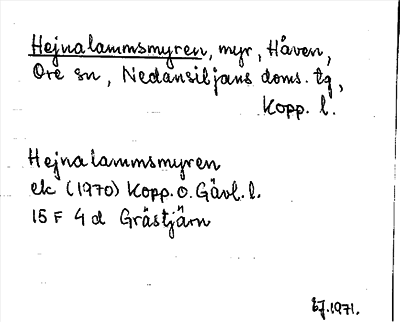 Hejnalammsmyren, myr, Håven,
Ore sn, Nedansiljans doms. tg,
Kopp. l.
Hejnalammsmyren
ek (1970) Kopp. o. Gävl. l.
15 F 4 d Grästjärn
1971.